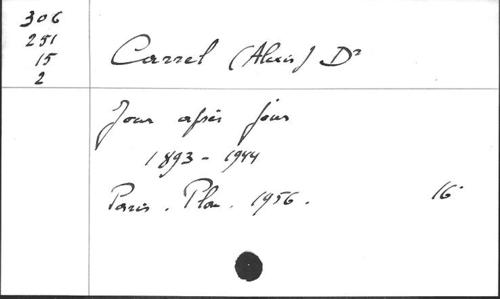 306
251
15
2
Carrel (Alexis) Dr
Jour après jour
1893-1944
Paris. Plon. 1956. 16°